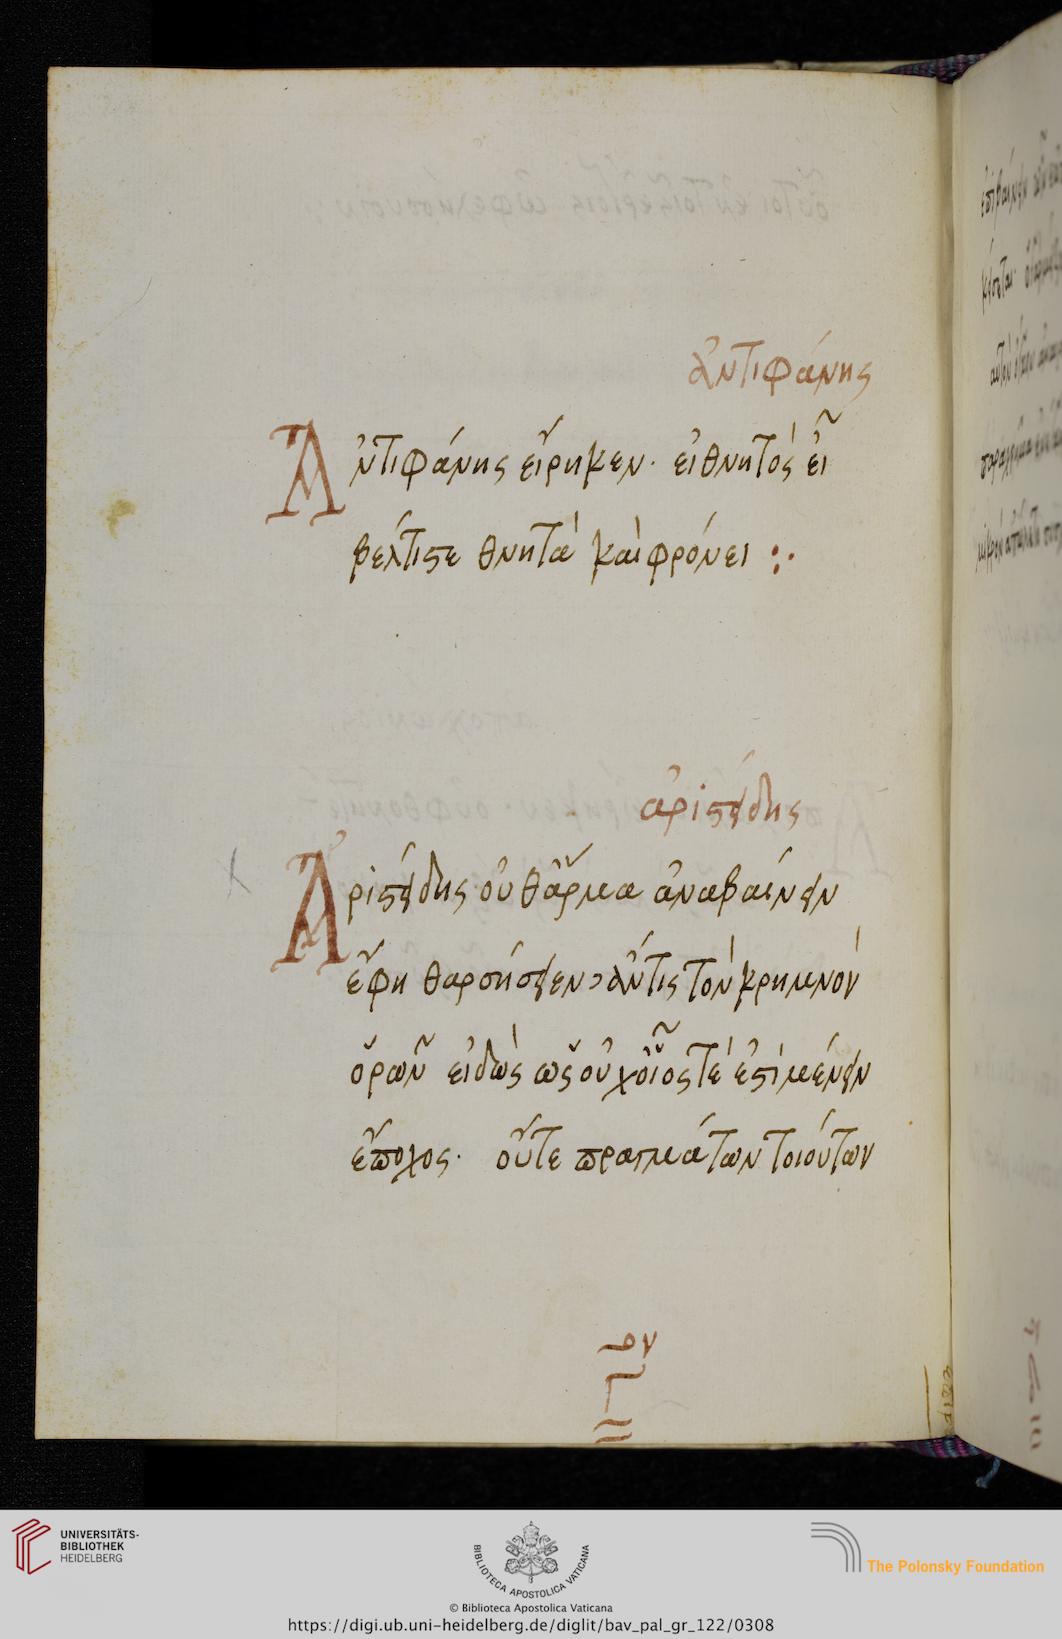 ἀντιφάνης
Ἀντιφάνης εἴρηκεν· εἰ θνητὸς εἶ
βέλτιστε θνητὰ καὶ φρόνει :·
ἀριστείδης
Ἀριστείδης οὐθ' ἅρμα ἀναβαίνειν
ἔφη θαρσήσειεν ἄντις τὸν κρημνὸν
ὁρῶν εἰδὼς ὡς οὐχ οἷός τέ ἐστι μένειν
ἔποχος· οὔτε πραγμάτων τοιούτων
UNIVERSITÄTS-
BIBLIOTHEK
HEIDELBERG
BIBLIOTECA APOSTOLICA VATICANA
The Polonsky Foundation
© Biblioteca Apostolica Vaticana
https://digi.ub.uni-heidelberg.de/diglit/bav_pal_gr_122/0308